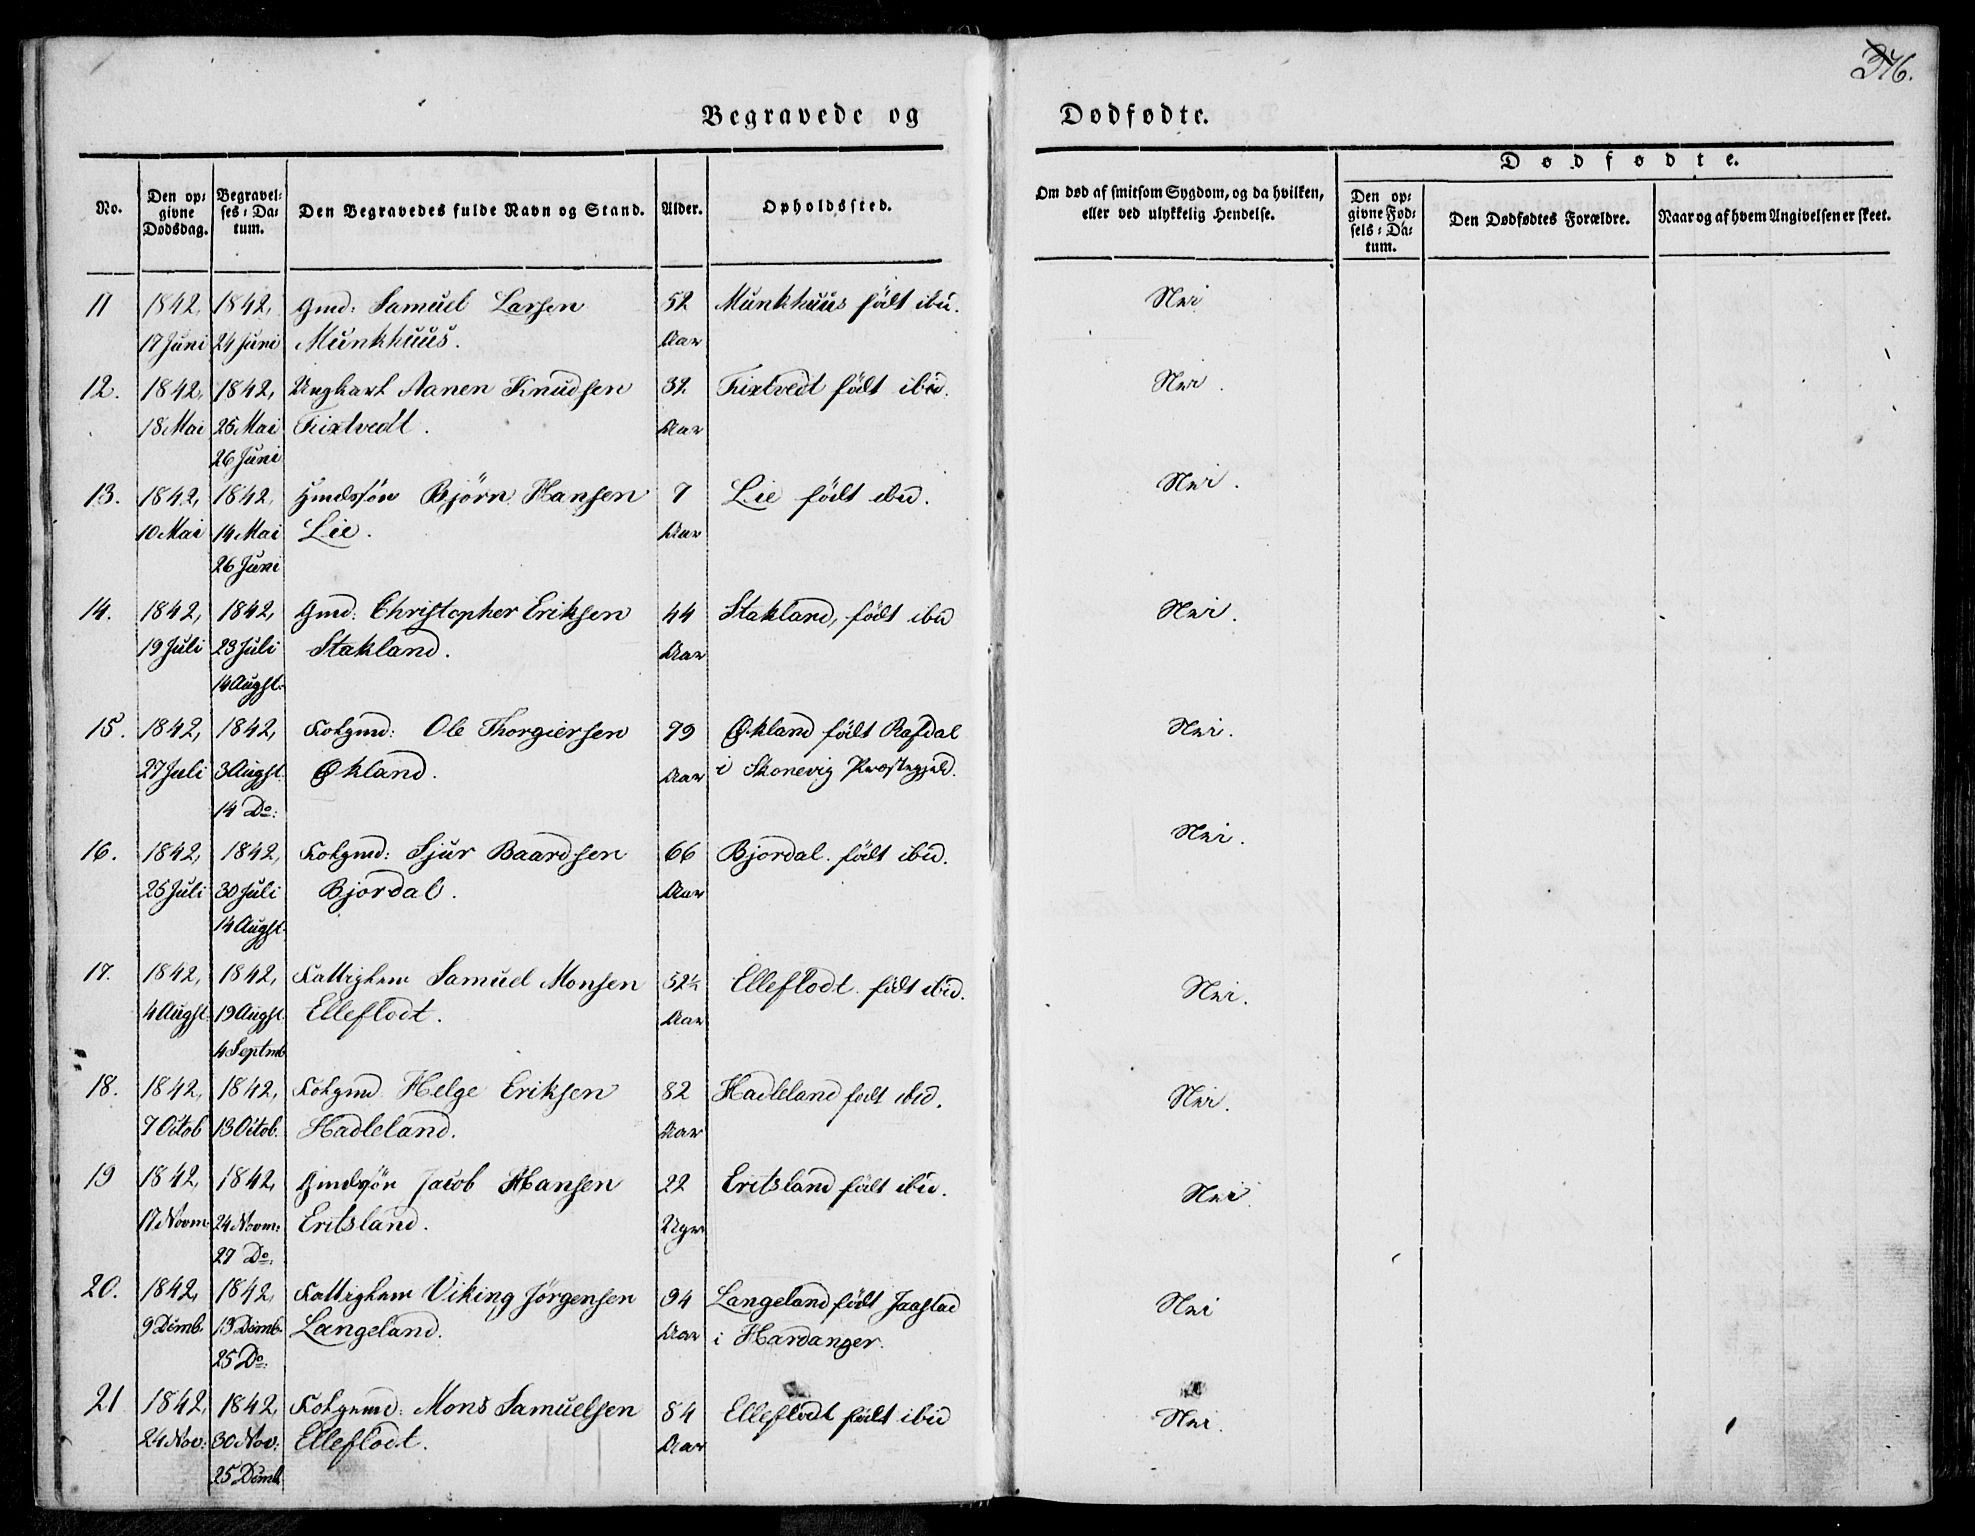 376.
Begravede og Dødfødte.
No. Den opgivne Dødsdag. Begravelses-Datum. Den Begravedes fulde Navn og Stand. Alder. Opholdssted. Om død af smitsom Sygdom, og da hvilken, eller ved ulykkelig Hendelse.
Dødfødte.
Den opgivne Fødsels-Datum. Den Dødfødtes Forældre. Naar og af hvem Angivelsen er skeet.
11 1842, 1842, Gmd: Samuel Larsen 52 Munkhuus født ibid. Nei
17 Juni 24 Juni Munkhuus. Aar
12. 1842, 1842, Ungkarl Aanen Knudsen 32 Tixtvedt født ibid. Nei.
18 Mai 25 Mai Tixtvedt. Aar
26 Juni
13. 1842, 1842, Gmdssøn Bjørn Hansen 7 Lie født ibid. Nei.
10 Mai 14 Mai Lie. Aar
26 Juni
14. 1842, 1842, Gmd: Christopher Eriksen 44 Stakland, født ibid Nei.
19 Juli 23 Juli Stakland. Aar
14 Augst.
15. 1842, 1842, Folgmd: Ole Thorgiersen 79 Økland født Rafdal Nei.
27 Juli 3 Augst. Økland. Aar i Skonevig Præstegjeld.
14 Do:
16. 1842, 1842, Folgmd: Sjur Baardsen 66 Bjordal. født ibid. Nei.
25 Juli 30 Juli Bjordal. Aar
14 Augst.
17. 1842, 1842, Fattiglem Samuel Monsen 52½ Elleflodt født ibid. Nei.
4 Augst. 19 Augst. Elleflodt. Aar
4 Septmb
18. 1842, 1842, Folgmd Helge Eriksen 82 Hadleland født ibid. Nei.
7 Octob 13 Octob. Hadleland. Aar
19 1842, 1842, Gmdsøn Jacob Hansen 22 Eritsland født ibid. Nei
17 Novm. 24 Novm: Eritsland. Uger
27 Do:
20. 1842, 1842, Fattiglem Viking Jørgensen 94 Langeland født Jaastad Nei
9 Dcmb. 13 Dcmb. Langeland. Aar i Hardanger.
25 Do:
21 1842, 1842, Folgmd: Mons Samuelsen 84 Elleflodt født ibid Nei.
24 Nov: 30 Nov: Elleflodt. Aar
25 Dcmb.